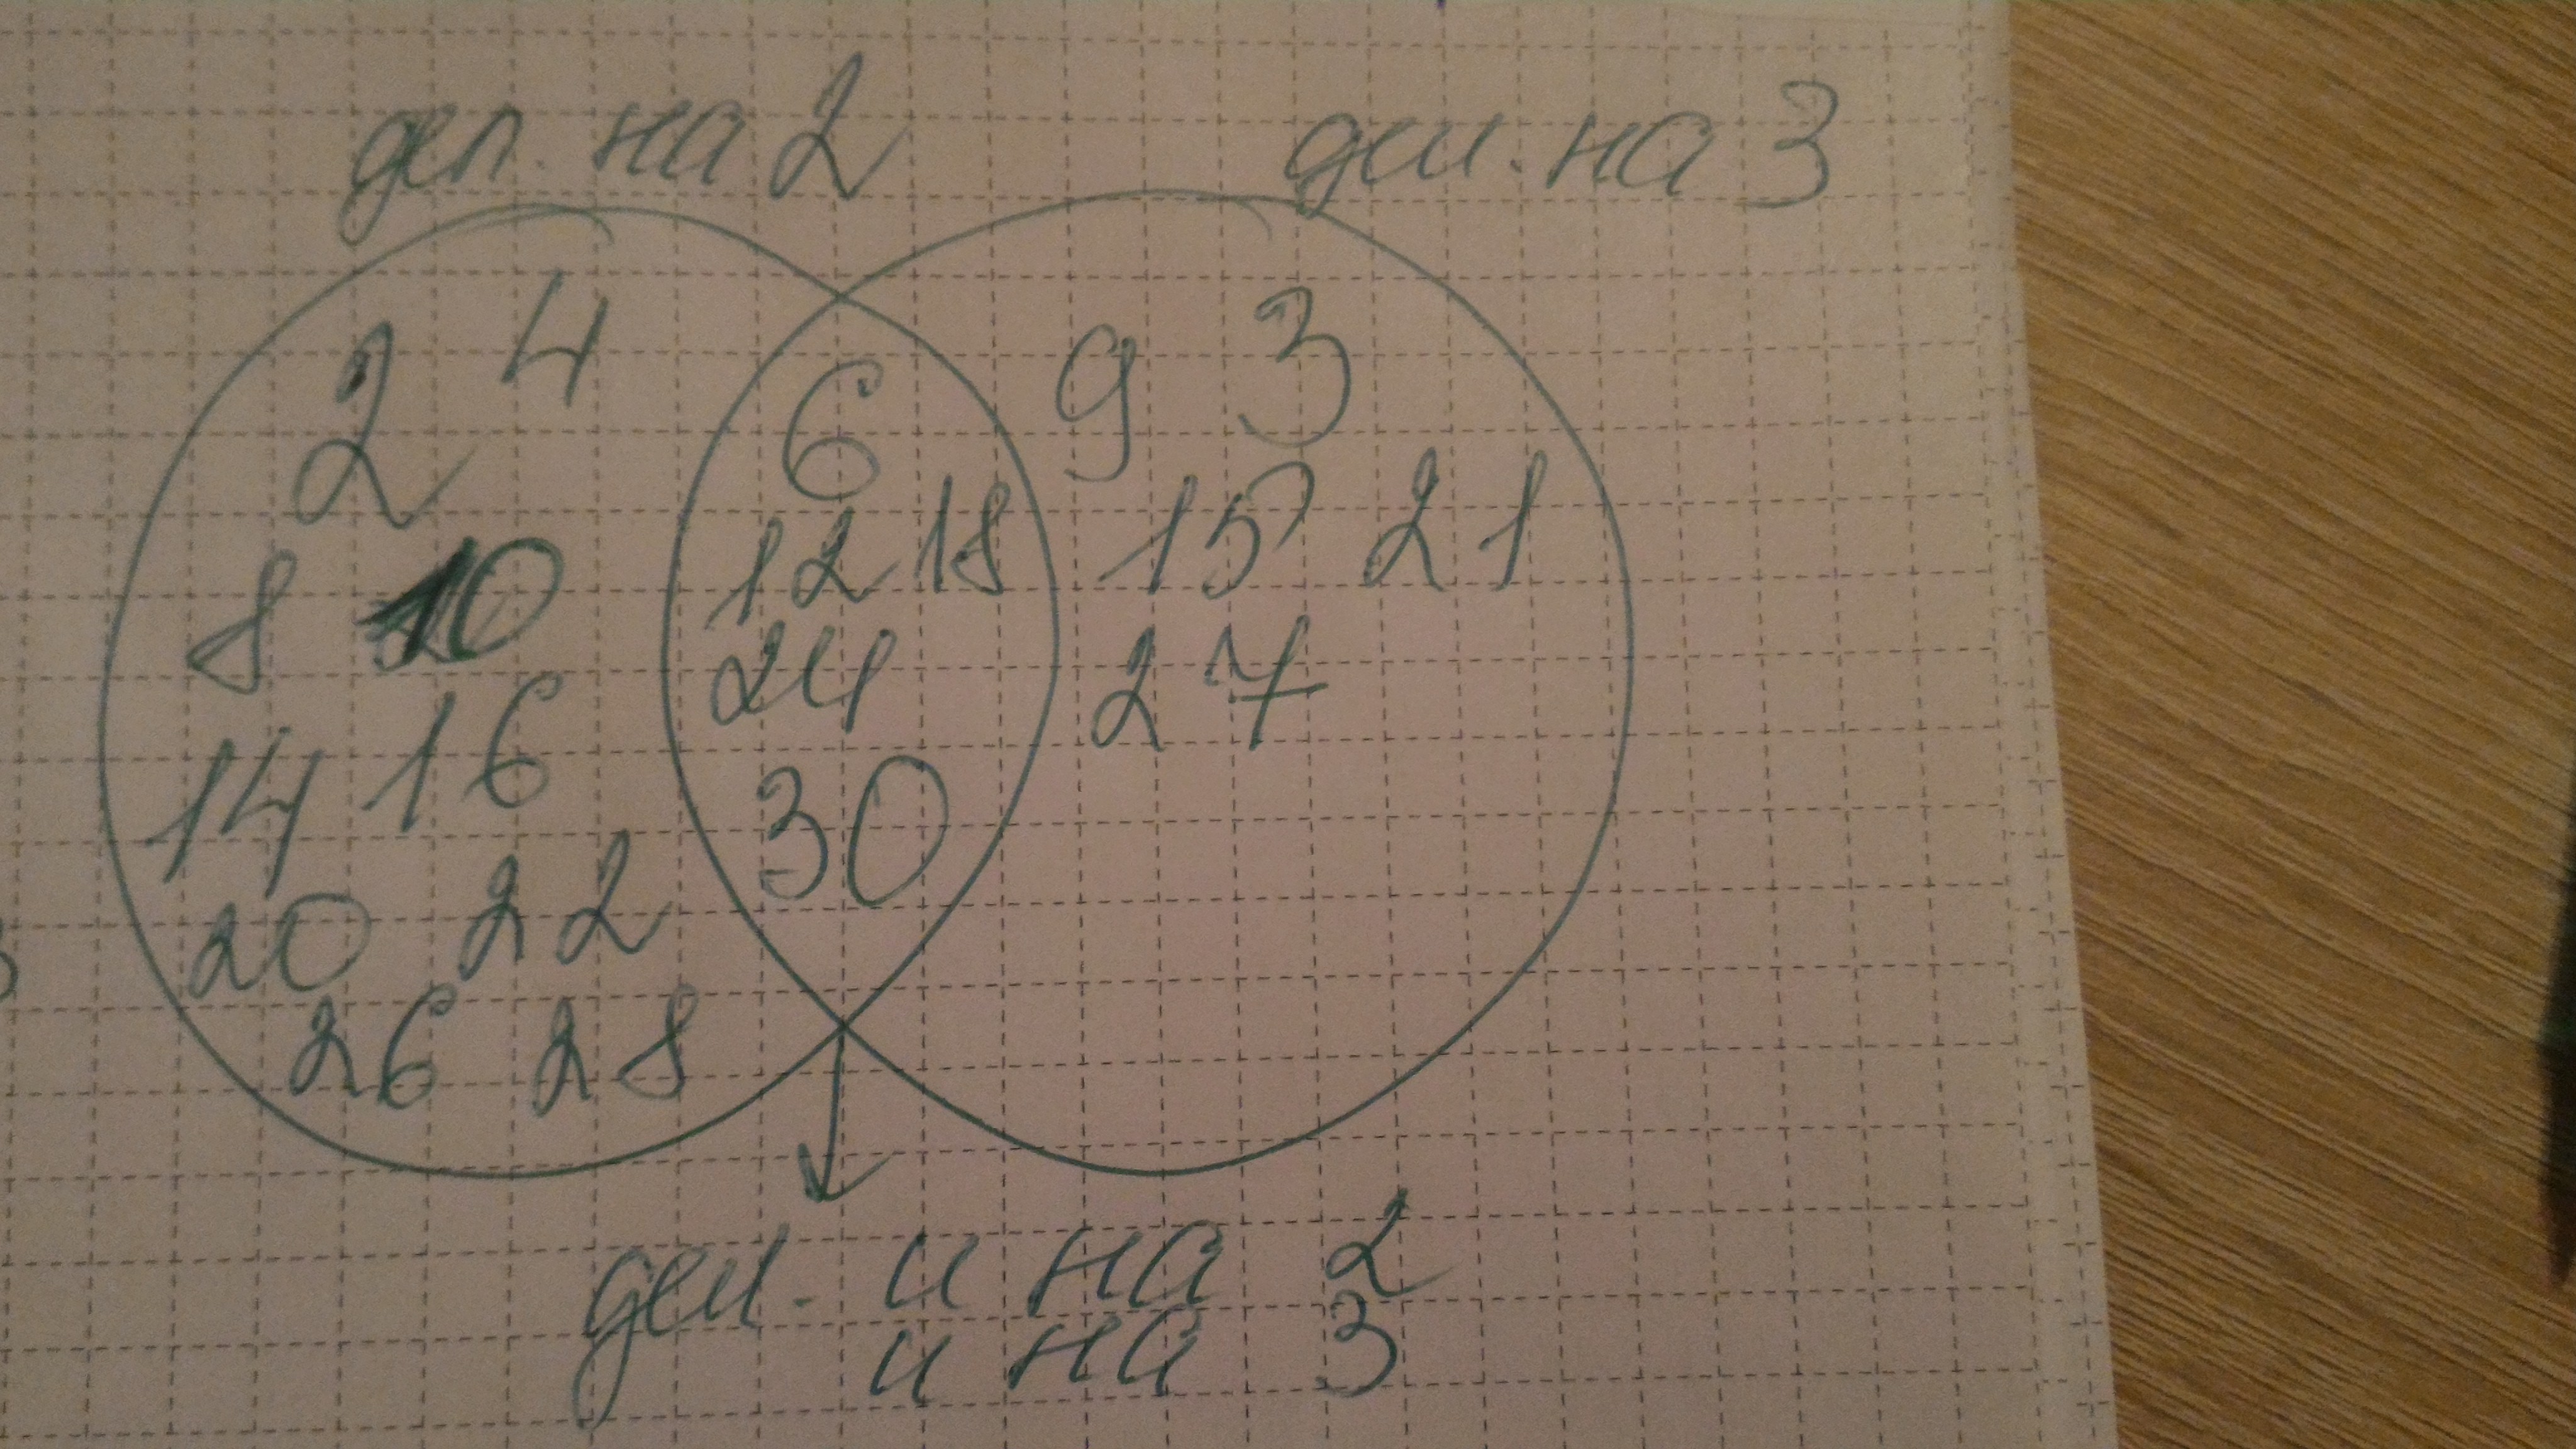 дел. на 2
дел. на 3
2 4
8 10
14 16
20 22
26 28
6
12 18
24
30
9 3
15 21
27
дел. и на 2
и на 3